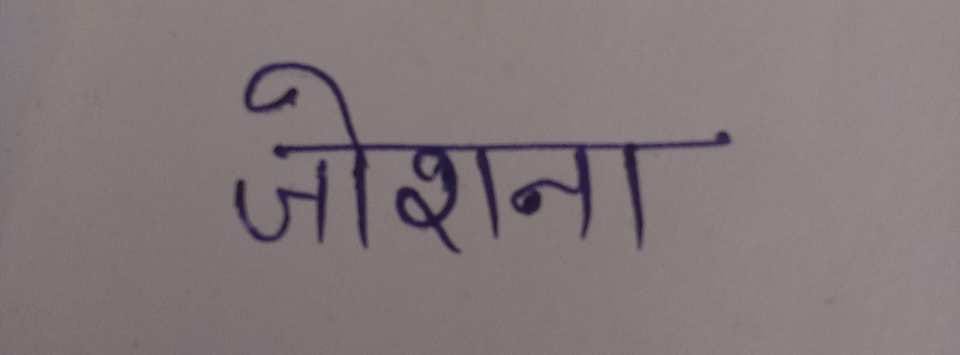 जोशना